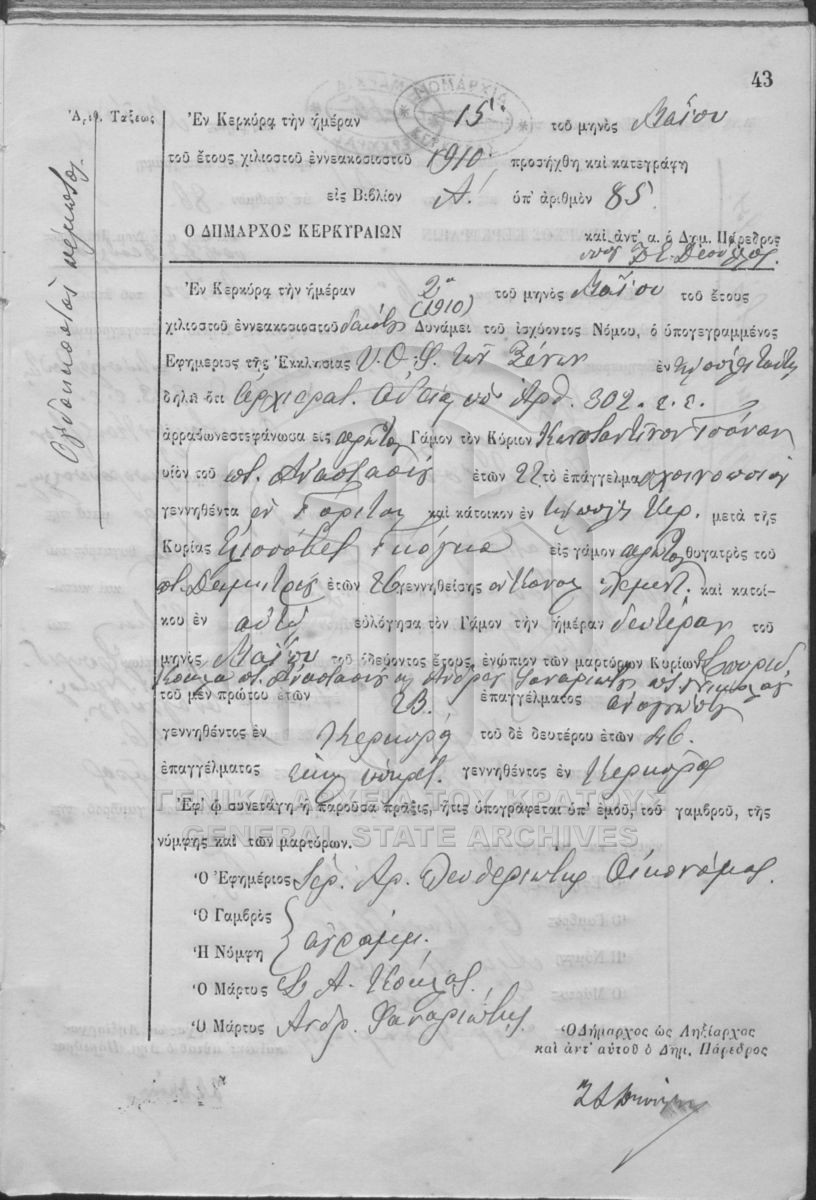 43
Ἀριθ. Τάξεως
Ὀγδοηκοστὸς πέμπτος
Ἐν Κερκύρᾳ τὴν ἡμέραν 15 τοῦ μηνὸς Μαΐου
τοῦ ἔτους χιλιοστοῦ ἐννεακοσιοστοῦ 1910 προσήχθη καὶ κατεγράφη
εἰς Βιβλίον Α΄. ὑπ' ἀριθμὸν 85
Ο ΔΗΜΑΡΧΟΣ ΚΕΡΚΥΡΑΙΩΝ καὶ ἀντ' α. ὁ Δημ. Πάρεδρος
Ἐν Κερκύρᾳ τὴν ἡμέραν 2α τοῦ μηνὸς Μαΐου τοῦ ἔτους
(1910)
χιλιοστοῦ ἐννεακοσιοστοῦ δεκάτου Δυνάμει τοῦ ἰσχύοντος Νόμου, ὁ ὑπογεγραμμένος
Ἐφημέριος τῆς Ἐκκλησίας Υ. Θ. τῶν Ξένων ἐν
δηλῶ ὅτι Ἀρχιερατ. ἀδείᾳ ὑπ' Ἀριθ. 302. ἐ. ἔ.
ἀρραβωνεστεφάνωσα εἰς πρῶτον Γάμον τὸν Κύριον Κωνσταντῖνον
υἱὸν τοῦ π. Ἀναστασίου ἐτῶν 22 τὸ ἐπάγγελμα σχοινοποιὸν
γεννηθέντα ἐν καὶ κάτοικον ἐν τῇ πόλει Κερ. μετὰ τῆς
Κυρίας Ἐλισάβετ Γκόγκα εἰς γάμον πρῶτον θυγατρὸς τοῦ
π. Δημητρίου ἐτῶν 26 γεννηθείσης ἐν καὶ κατοί-
κου ἐν αὐτῇ εὐλόγησα τὸν Γάμον τὴν ἡμέραν δευτέραν τοῦ
μηνὸς Μαΐου τοῦ ὁδεύοντος ἔτους, ἐνώπιον τῶν μαρτύρων Κυρίων Σπυρίδ.
Κόκλα π. Ἀναστασίου κ. Ἀνδρέα Φαναριώτη π. Νικολάου
τοῦ μὲν πρώτου ἐτῶν 23. ἐπαγγέλματος
γεννηθέντος ἐν Κερκύρᾳ τοῦ δὲ δευτέρου ἐτῶν 46.
ἐπαγγέλματος ὑπηρέτ. γεννηθέντος ἐν Κερκύρᾳ
ΓΕΝΙΚΑ ΑΡΧΕΙΑ ΤΟΥ ΚΡΑΤΟΥΣ
Ἐφ' ᾧ συνετάγη ἡ παροῦσα πρᾶξις, ἥτις ὑπογράφεται ὑπ' ἐμοῦ, τοῦ γαμβροῦ, τῆς
GENERAL STATE ARCHIVES
νύμφης καὶ τῶν μαρτύρων.
Ὁ Ἐφημέριος Ἱερ. Ἀρ. Λευθεριώτης Οἰκονόμος.
Ὁ Γαμβρὸς
Ἡ Νύμφη ἀγράμμ.
Ὁ Μάρτυς Σ. Α. Κόκλας
Ὁ Μάρτυς Ἀνδρ. Φαναριώτης
Ὁ Δήμαρχος ὡς Ληξίαρχος
καὶ ἀντ' αὐτοῦ ὁ Δημ. Πάρεδρος